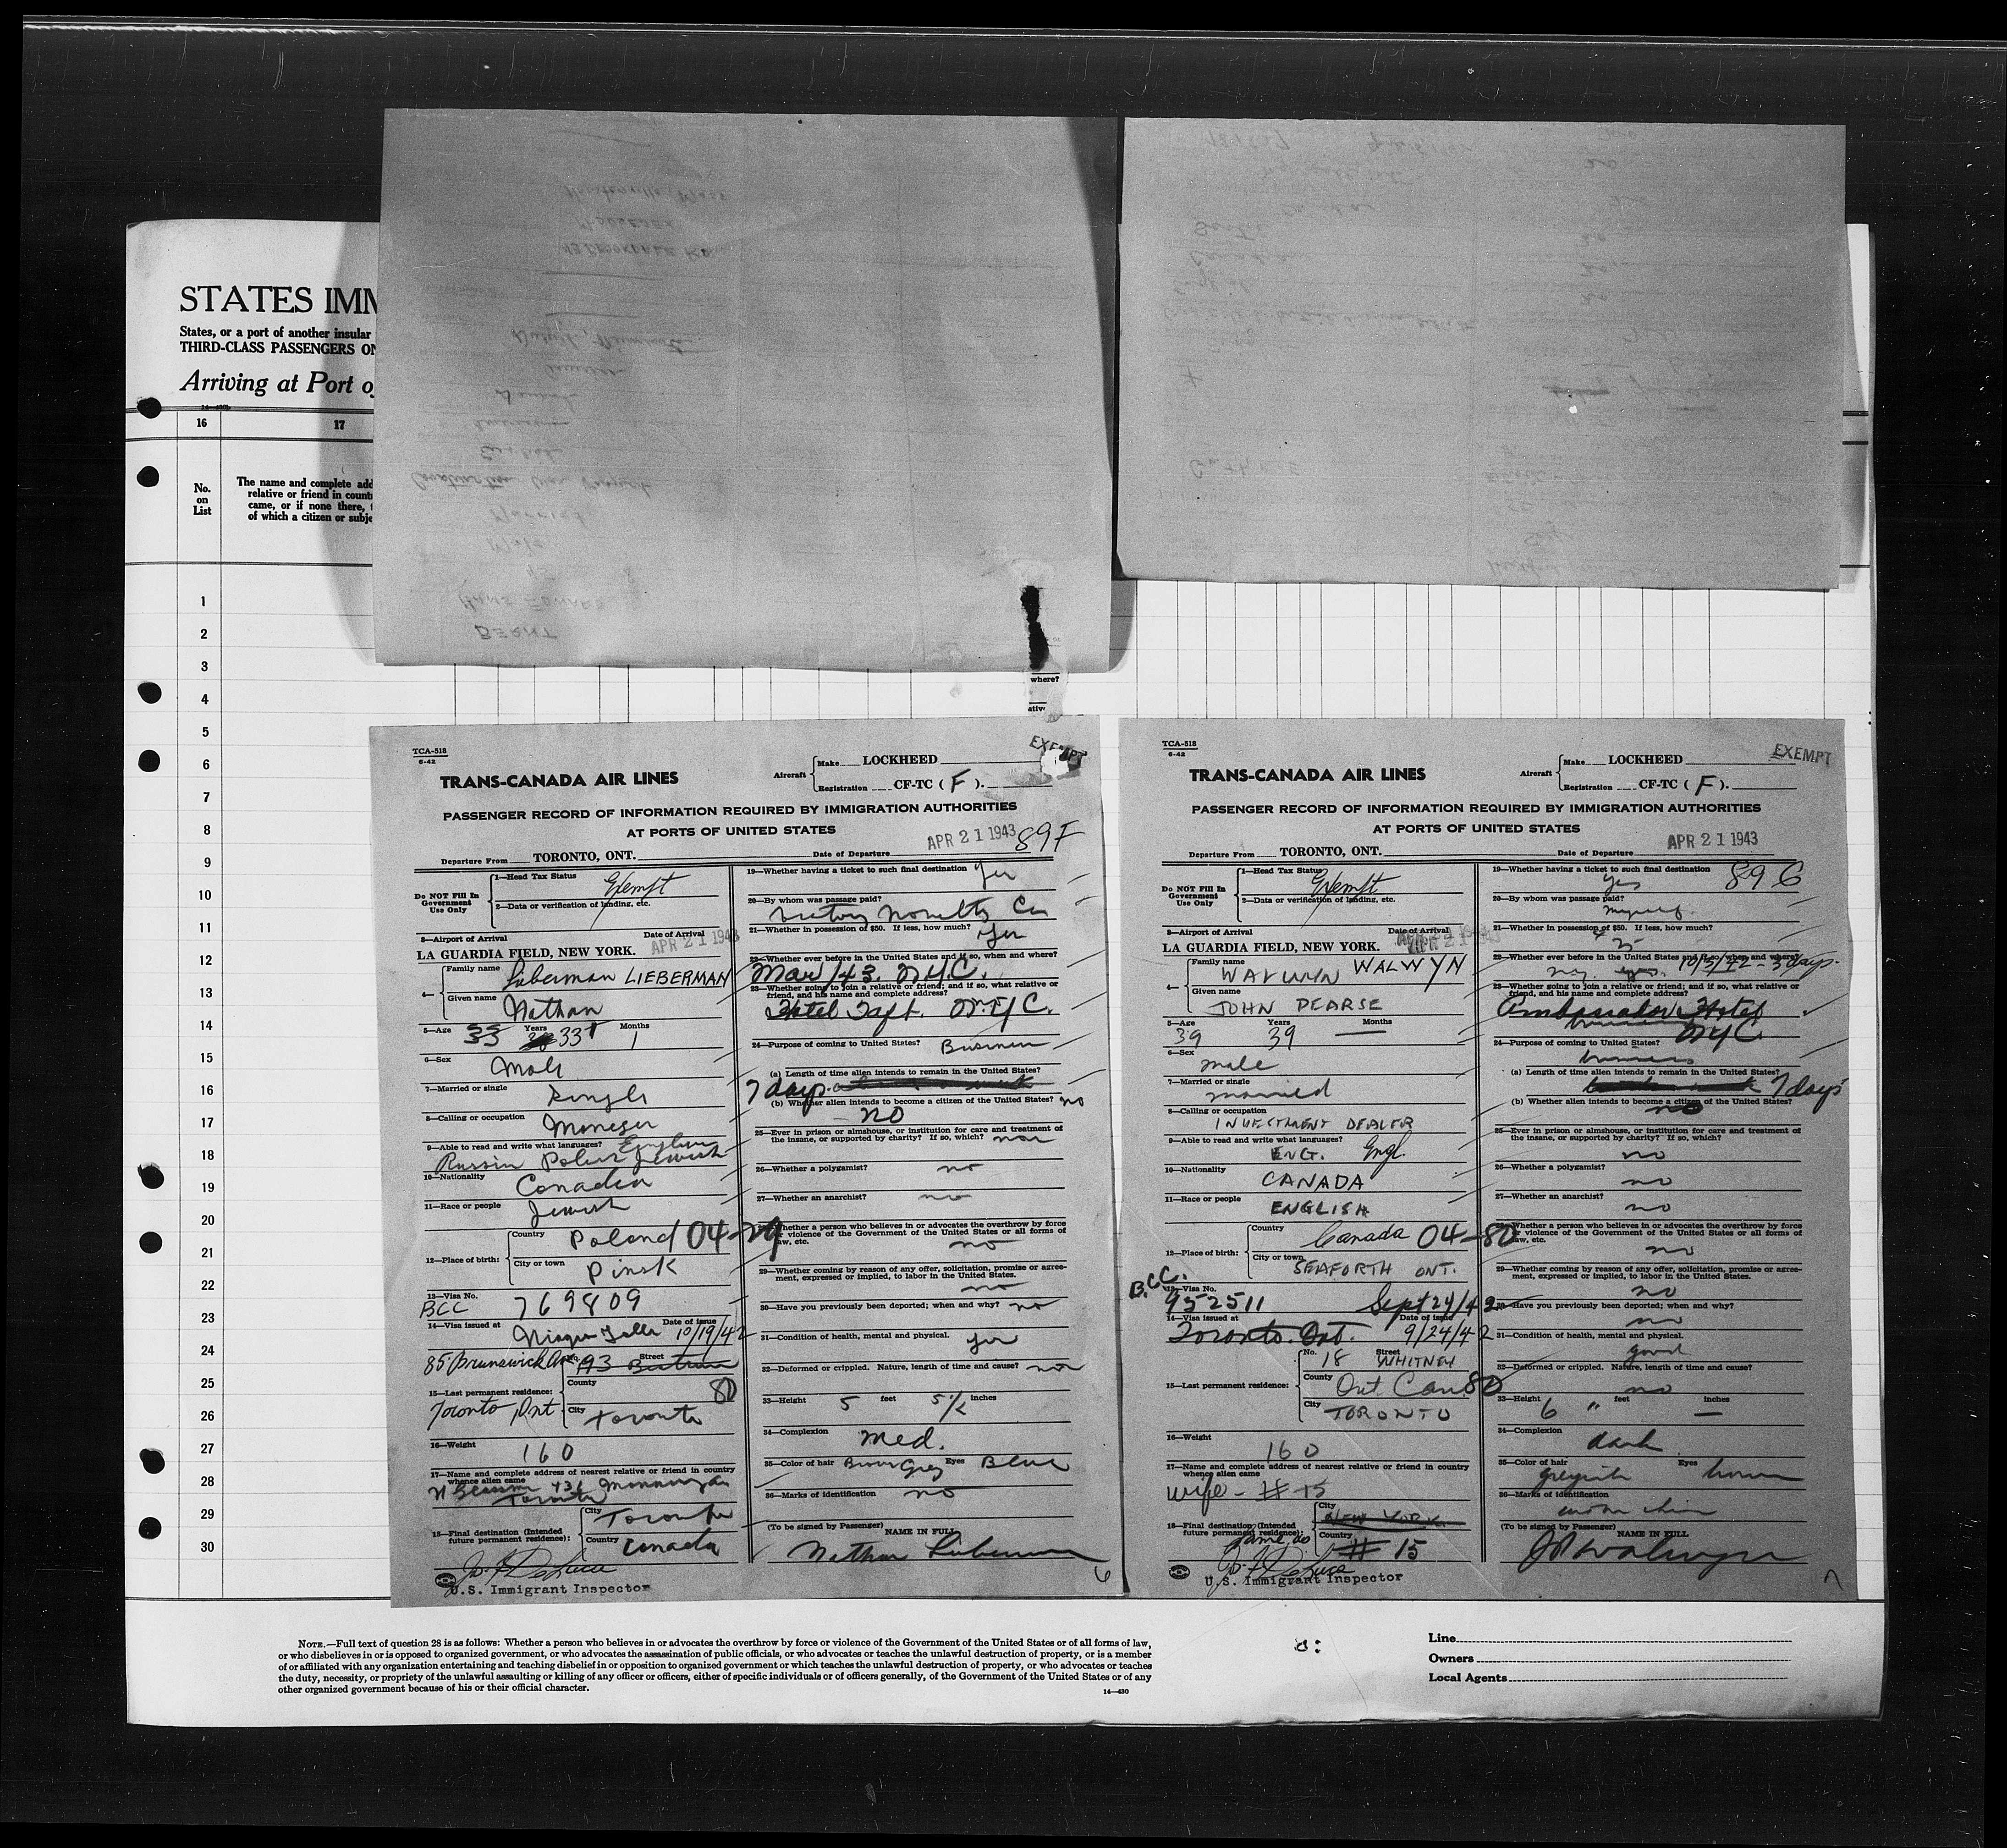 STATES IMM
States, or a port of another insular
THIRD-CLASS PASSENGERS ON
Arriving at Port o
16
17
No.
on
List
The name and complete add
relative or friend in count
came, or if none there,
of which a citizen or subje
1
2
3
4
5
6
7
8
9
10
11
12
13
14
15
16
17
18
19
20
21
22
23
24
25
26
27
28
29
30
where?
TCA-518
6-42
EXEMPT
TRANS-CANADA AIR LINES
Aircraft
Make LOCKHEED
Registration CF-TC ( F ).
PASSENGER RECORD OF INFORMATION REQUIRED BY IMMIGRATION AUTHORITIES
AT PORTS OF UNITED STATES
APR 21 1943 89F
Departure From TORONTO, ONT. Date of Departure
Do NOT Fill In
Government
Use Only
1—Head Tax Status Exempt
2—Data or verification of landing, etc.
3—Airport of Arrival Date of Arrival
LA GUARDIA FIELD, NEW YORK. APR 21 1943
4— Family name Liberman LIEBERMAN
Given name Nathan
5—Age 33 Years 33 Months 1
6—Sex Male
7—Married or single Single
8—Calling or occupation Maneger
9—Able to read and write what languages? English
Russin Polish Jewish
10—Nationality Canadian
11—Race or people Jewish
12—Place of birth: Country Poland 04-29
City or town Pinsk
13—Visa No.
BCC 769809
14—Visa issued at Niagra Falls Date of issue 10/19/42
85 Brunswick Ave No. 193 Street
15—Last permanent residence: County 80
Toronto, Ont City Toronto
16—Weight 160
17—Name and complete address of nearest relative or friend in country
whence alien came
Toronto
18—Final destination (Intended
future permanent residence): City Toronto
Country Canada
U.S. Immigrant Inspector
19—Whether having a ticket to such final destination Yes
20—By whom was passage paid?
Victory Novelty Co
21—Whether in possession of $50. If less, how much? Yes
22—Whether ever before in the United States and if so, when and where?
Mar/43, N.Y.C.
23—Whether going to join a relative or friend; and if so, what relative or
friend, and his name and complete address?
Hotel Taft. N.Y.C.
24—Purpose of coming to United States? Business
(a) Length of time alien intends to remain in the United States?
7 days
(b) Whether alien intends to become a citizen of the United States? no
NO
25—Ever in prison or almshouse, or institution for care and treatment of
the insane, or supported by charity? If so, which?
26—Whether a polygamist? no
27—Whether an anarchist? no
Whether a person who believes in or advocates the overthrow by force
or violence of the Government of the United States or all forms of
law, etc. no
29—Whether coming by reason of any offer, solicitation, promise or agree-
ment, expressed or implied, to labor in the United States.
no
30—Have you previously been deported; when and why? no
31—Condition of health, mental and physical.
32—Deformed or crippled. Nature, length of time and cause?
33—Height 5 feet 5½ inches
34—Complexion Med.
35—Color of hair Brown Grey Eyes Blue
36—Marks of identification no
(To be signed by Passenger) NAME IN FULL
Nathan Liberman
6
TCA-518
6-42
EXEMPT
TRANS-CANADA AIR LINES
Aircraft
Make LOCKHEED
Registration CF-TC ( F ).
PASSENGER RECORD OF INFORMATION REQUIRED BY IMMIGRATION AUTHORITIES
AT PORTS OF UNITED STATES
APR 21 1943
Departure From TORONTO, ONT. Date of Departure
Do NOT Fill In
Government
Use Only
1—Head Tax Status Exempt
2—Data or verification of landing, etc.
3—Airport of Arrival Date of Arrival
LA GUARDIA FIELD, NEW YORK. APR 21 1943
4— Family name WALWYN WALWYN
Given name JOHN PEARSE
5—Age 39 Years 39 Months —
6—Sex male
7—Married or single married
8—Calling or occupation
INVESTMENT DEALER
9—Able to read and write what languages?
ENG. Engl.
10—Nationality CANADA
11—Race or people ENGLISH
12—Place of birth: Country Canada 04-80
City or town SEAFORTH ONT.
B.C.C.
13—Visa No.
952511 Sept 24/42
14—Visa issued at Date of issue
Toronto. Ont. 9/24/42
15—Last permanent residence: No. 18 Street WHITNEY
County Ont Can 80
City TORONTO
16—Weight 160
17—Name and complete address of nearest relative or friend in country
whence alien came
wife - #15
18—Final destination (Intended
future permanent residence): City NEW YORK
same as Country # 15
U.S. Immigrant Inspector
19—Whether having a ticket to such final destination
yes 89 G
20—By whom was passage paid?
myself.
21—Whether in possession of $50. If less, how much?
22—Whether ever before in the United States and if so, when and where?
10/5/42 - 3 days.
23—Whether going to join a relative or friend; and if so, what relative or
friend, and his name and complete address?
Ambassador Hotel
NYC.
24—Purpose of coming to United States?
business
(a) Length of time alien intends to remain in the United States?
7 days
(b) Whether alien intends to become a citizen of the United States?
no
25—Ever in prison or almshouse, or institution for care and treatment of
the insane, or supported by charity? If so, which?
no
26—Whether a polygamist?
no
27—Whether an anarchist?
no
Whether a person who believes in or advocates the overthrow by force
or violence of the Government of the United States or all forms of
law, etc.
no
29—Whether coming by reason of any offer, solicitation, promise or agree-
ment, expressed or implied, to labor in the United States.
no
30—Have you previously been deported; when and why?
no
31—Condition of health, mental and physical.
good
32—Deformed or crippled. Nature, length of time and cause?
no
33—Height 6 " feet — inches
34—Complexion dark
35—Color of hair greyish Eyes brown
36—Marks of identification
(To be signed by Passenger) NAME IN FULL
JP Walwyn
7
NOTE.—Full text of question 28 is as follows: Whether a person who believes in or advocates the overthrow by force or violence of the Government of the United States or of all forms of law,
or who disbelieves in or is opposed to organized government, or who advocates the assassination of public officials, or who advocates or teaches the unlawful destruction of property, or is a member
of or affiliated with any organization entertaining and teaching disbelief in or opposition to organized government or which teaches the unlawful destruction of property, or who advocates or teaches
the duty, necessity, or propriety of the unlawful assaulting or killing of any officer or officers, either of specific individuals or of officers generally, of the Government of the United States or of any
other organized government because of his or their official character.
14—430
Line
Owners
Local Agents